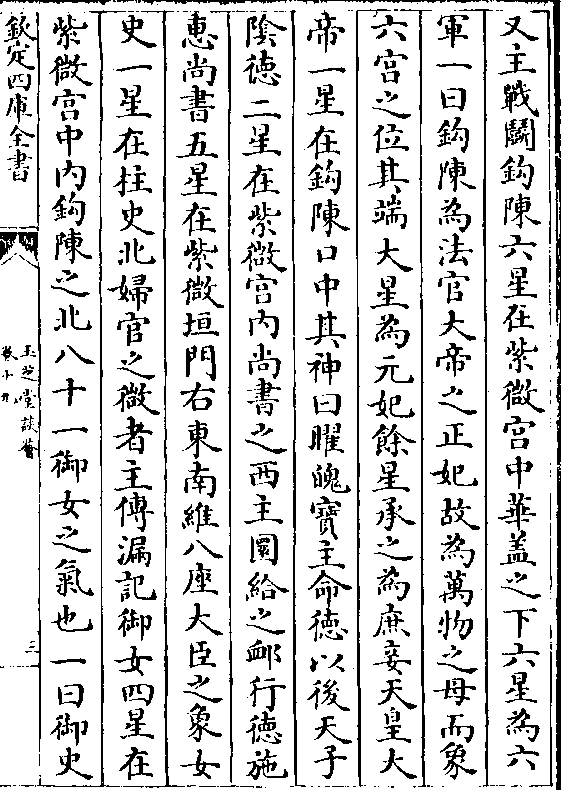 又主戰鬭鈎陳六星在紫微宫中華盖之下六星為六
軍一曰鈎陳為法官大帝之正妃故為萬物之母而象
六宫之位其端大星為元妃餘星承之為庶妾天皇大
帝一星在鈎陳口中其神曰曜魄寶主命徳以後天子
隂徳二星在紫微宫内尚書之西主圍給之䘏行徳施
恵尚書五星在紫微垣門右東南維八座大臣之象女
史一星在柱史北婦官之微者主傳漏記御女四星在
紫微宫中内鈎陳之北八十一御女之氣也一曰御史
欽定四庫全書
玉芝堂談薈
卷十九
三